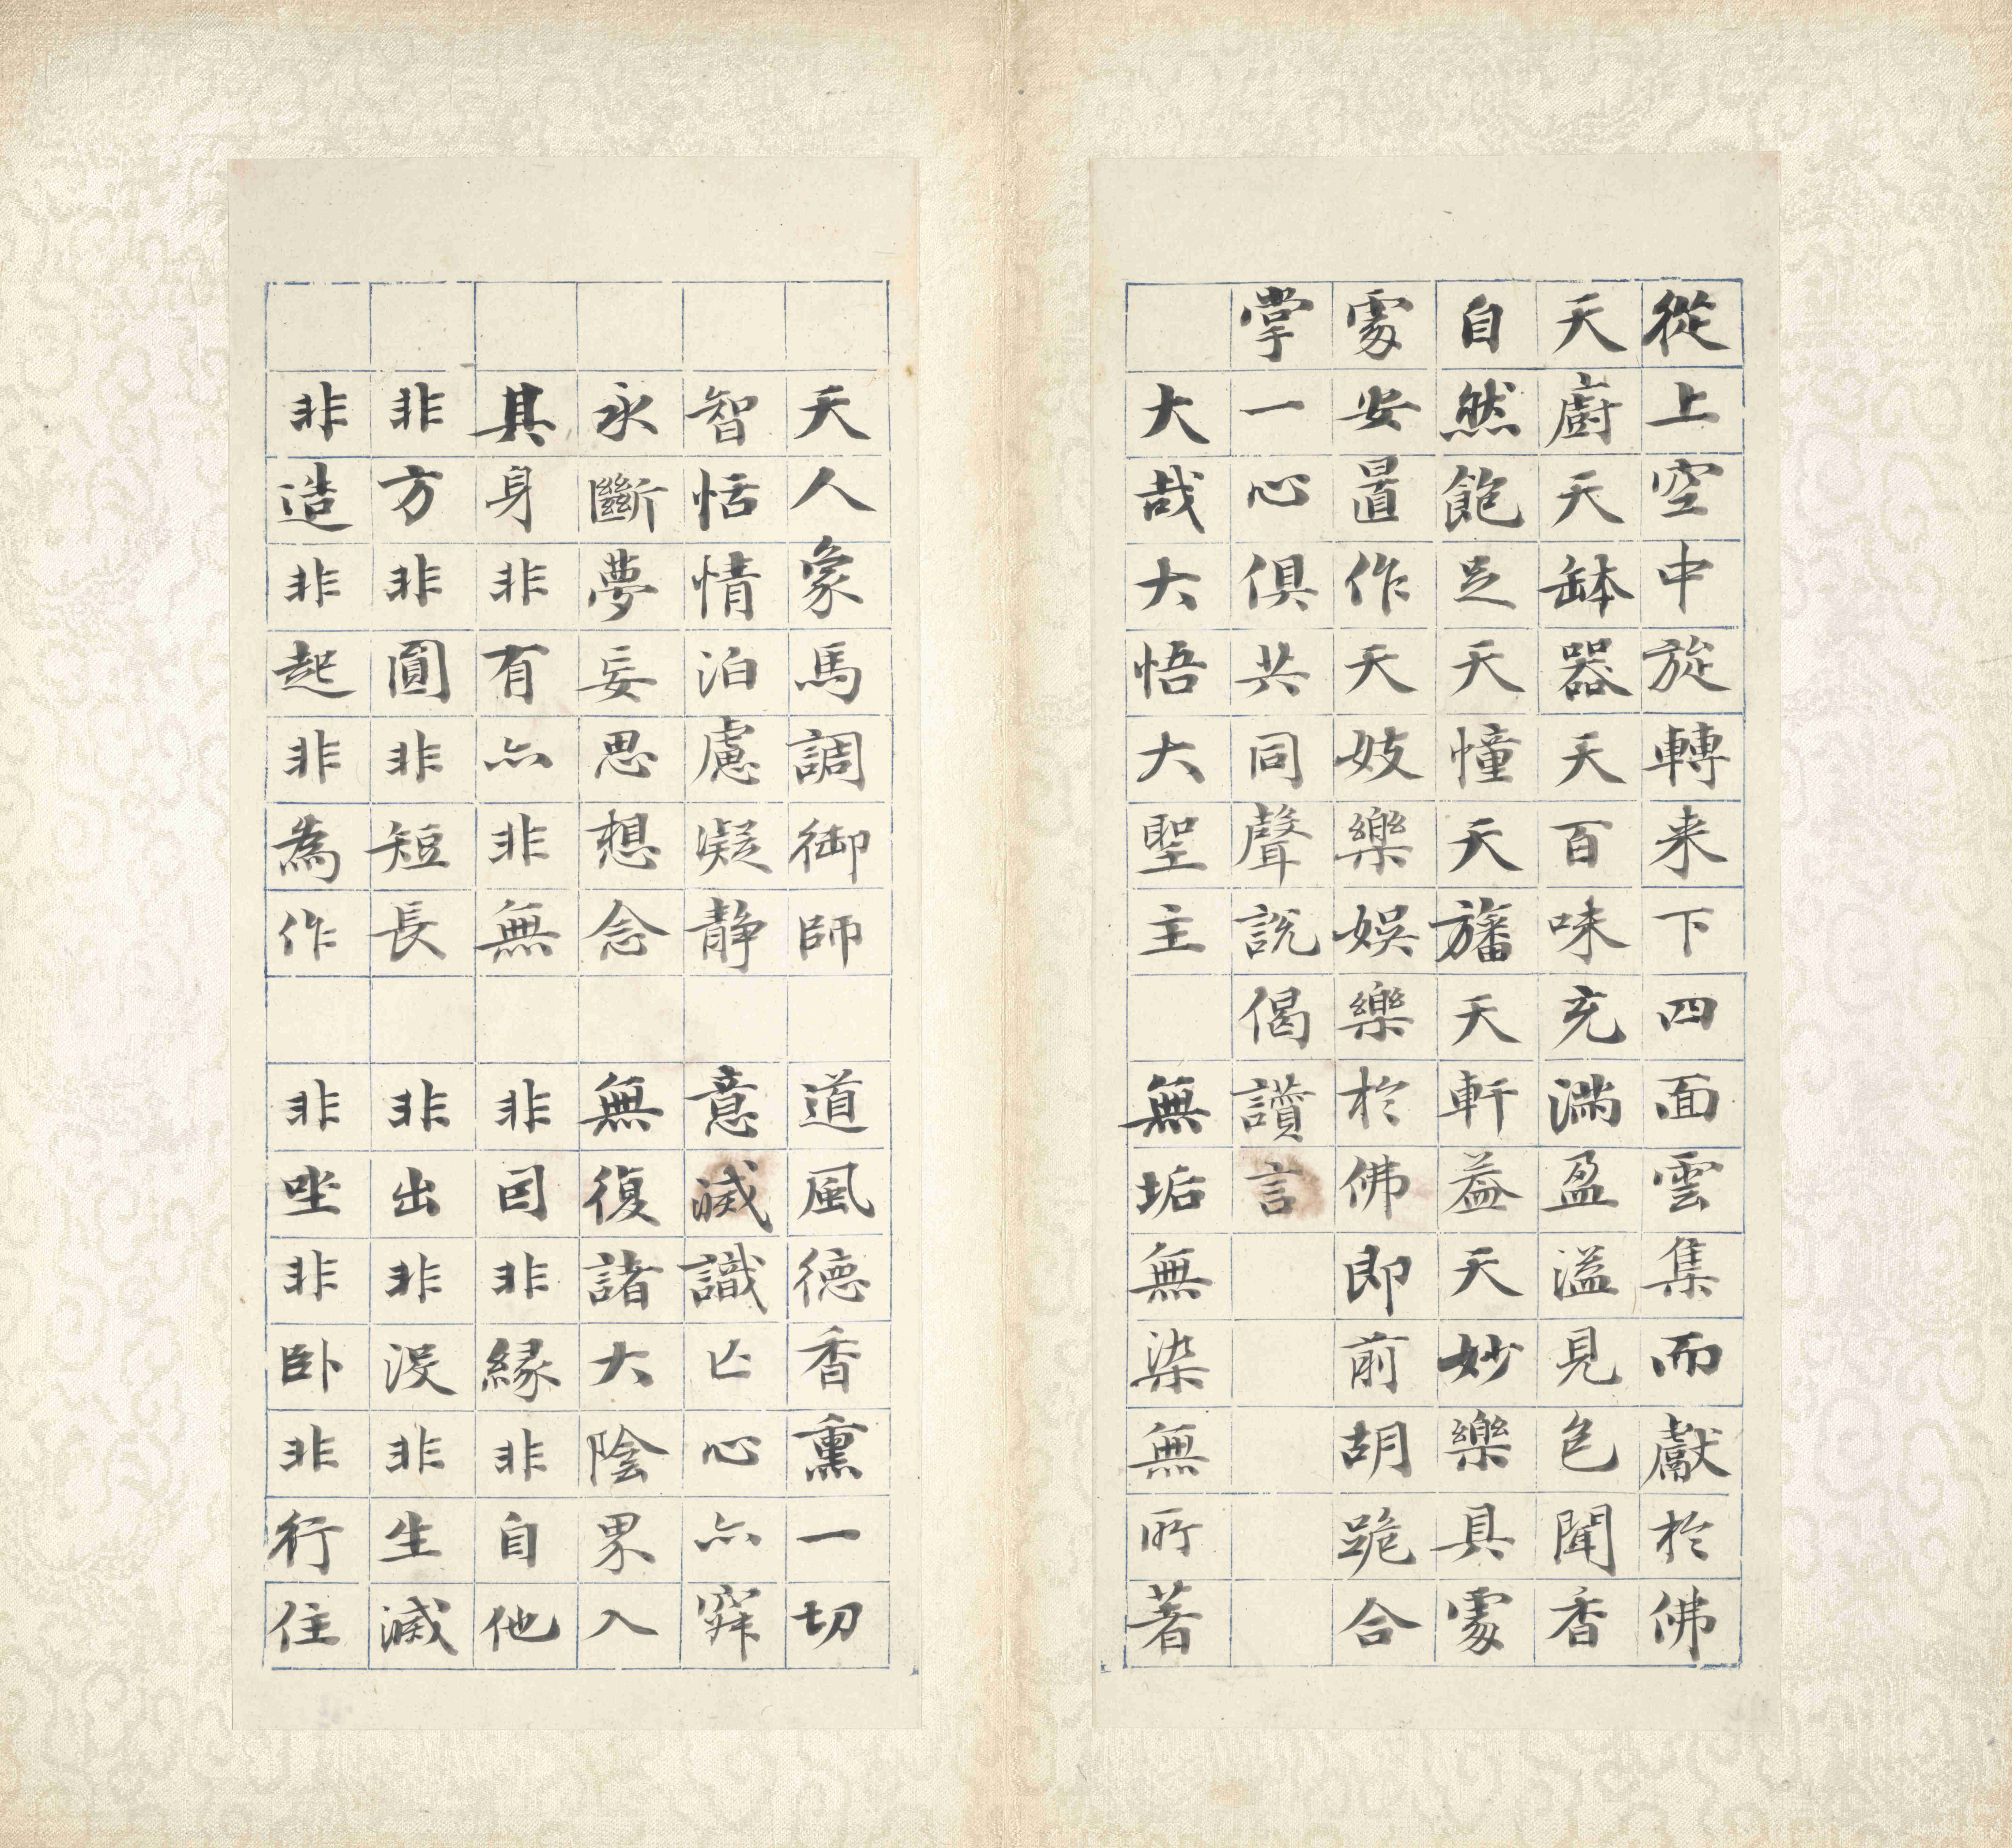 從上空中旋轉来下四面雲集而獻於佛
天廚天鉢器天百味充滿盈溢見色聞香
自然飽足天幢天旛天軒蓋天妙樂具處
處安置作天妓樂娛樂於佛即前胡跪合
掌一心俱共同聲說偈讚言
大哉大悟大聖主　無垢無染無所著
天人象馬調御師　道風德香熏一切
智恬情泊慮凝静　意滅識亡心亦寂
永斷夢妄思想念　無復諸大陰界入
其身非有亦非無　非因非緣非自他
非方非圓非短長　非出非沒非生滅
非造非起非為作　非坐非卧非行住